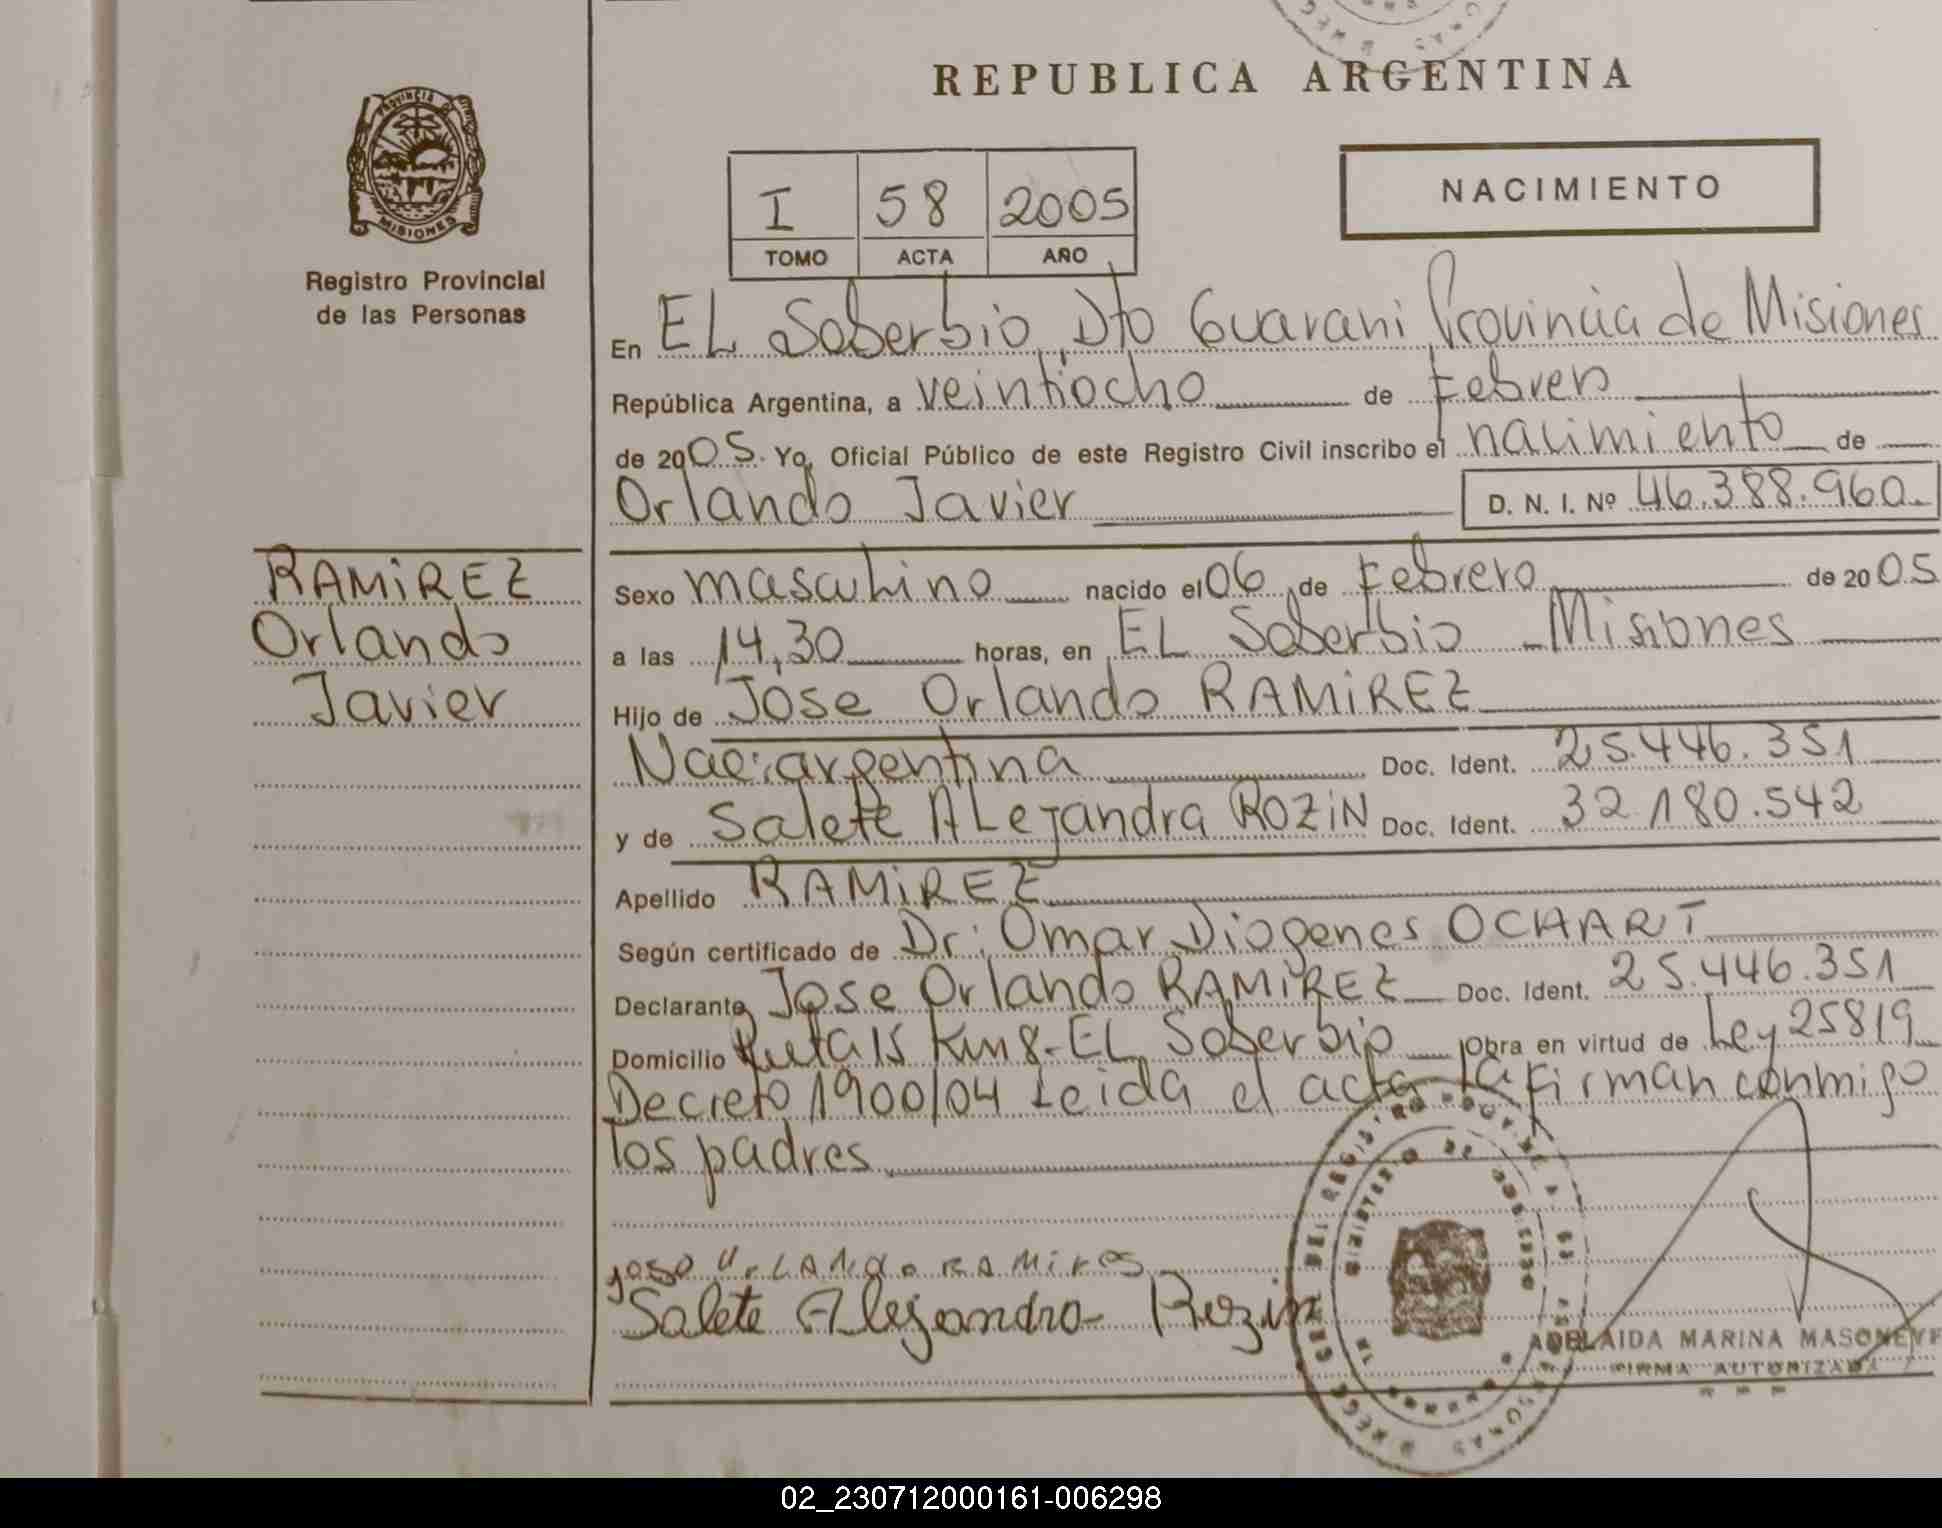 REPUBLICA ARGENTINA
PROVINCIA DE
MISIONES
Registro Provincial
de las Personas
I 58 2005
TOMO ACTA AÑO
NACIMIENTO
En EL Soberbio, Dto Guarani Provincia de Misiones
República Argentina, a veintiocho de Febrero
de 2005. Yo, Oficial Público de este Registro Civil inscribo el nacimiento de
Orlando Javier D. N. I. Nº 46.388.960.
RAMIREZ
Orlando
Javier
Sexo masculino nacido el 06 de Febrero de 2005
a las 14,30 horas, en EL Soberbio - Misiones
Hijo de Jose Orlando RAMIREZ
Nac: argentina Doc. Ident. 25.446.351
y de Salete ALejandra ROZIN Doc. Ident. 32.180.542
Apellido RAMIREZ
Según certificado de Dr: Omar Diogenes OCHART
Declarante Jose Orlando RAMIREZ Doc. Ident. 25.446.351
Domicilio Ruta 15 Km 8-EL Soberbio Obra en virtud de Ley 25819
Decreto 1900/04 Leida el acta la firman conmigo
los padres
Salete Alejandra Rozin
ADELAIDA MARINA
FIRMA AUTORIZADA
02_230712000161-006298